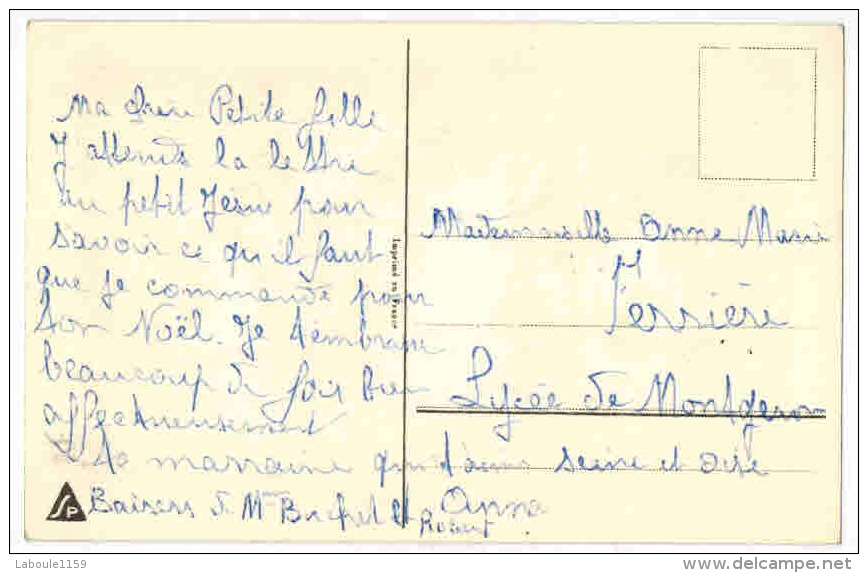 Ma chere Petite fille
J attends la lettre
au petit Jesus pour
savoir ce qu il faut
que je commande pour
ton Noël. Je t'embrasse
beaucoup de fois bien
affectueusement
ta marraine qui t'aime
Baisers de Mme et
Robert
Anna
Imprimé en France
Mademoiselle Anne Marie
Ferrière
Lycée de Montgeron
Seine et Oise
SP
Laboule1159
www.delcampe.net